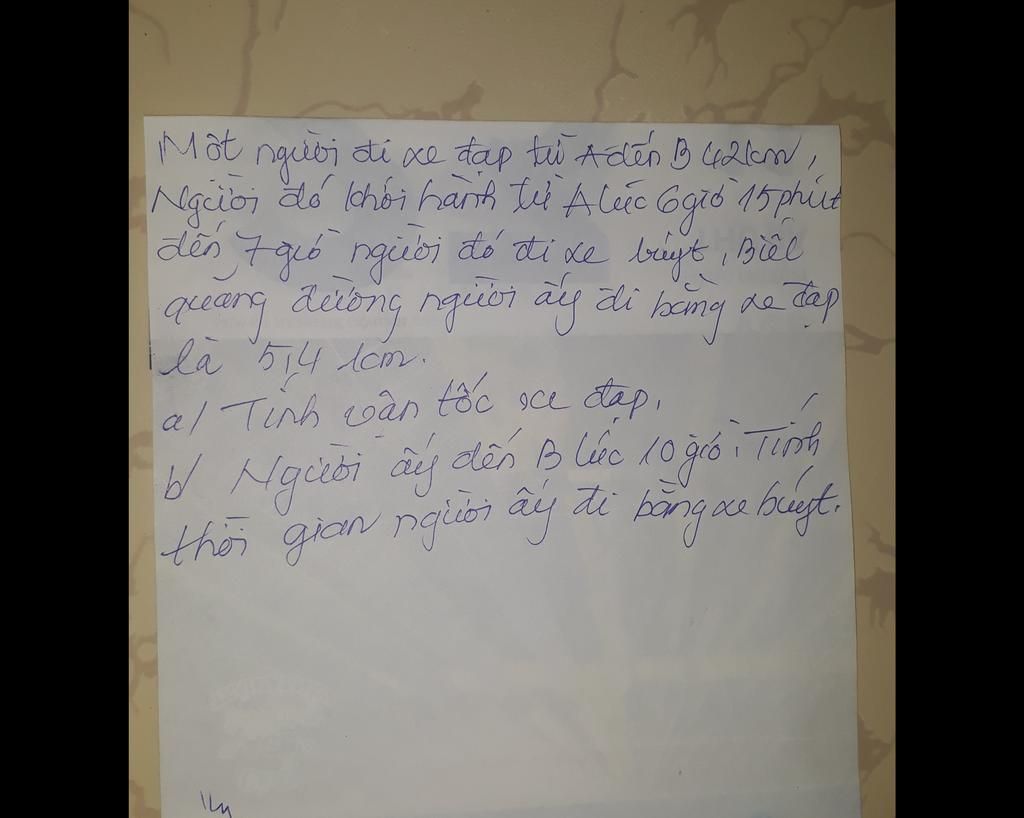 Một người đi xe đạp từ A đến B 42km,
Người đó khởi hành từ A lúc 6 giờ 15 phút
đến 7 giờ người đó đi xe buýt, Biết
quãng đường người ấy đi bằng xe đạp
là 5,4 km.
a/ Tính vận tốc xe đạp,
b/ Người ấy đến B lúc 10 giờ. Tính
thời gian người ấy đi bằng xe buýt.